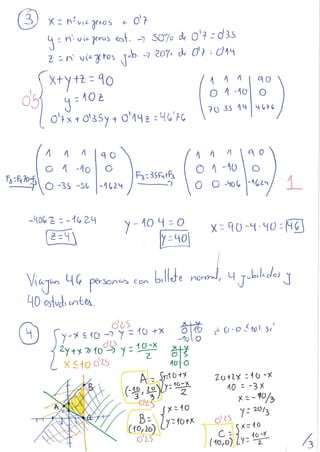 3 x = nº viajeros a 0'7
y = nº viajeros est. → 50% de 0'7 = 0'35
z = nº viajeros jub. → 20% de 0'7 = 0'14
x+y+z = 90
y = 10z
0'7x + 0'35y + 0'14z = 46'76
0'5
1 1 1 | 90
0 1 -10 | 0
70 35 14 | 4676
1 1 1 | 90
0 1 -10 | 0
0 -35 -56 | -1624
F3=35F2+F3
1 1 1 | 90
0 1 -10 | 0
0 0 -406 | -1624
1
-406z = -1624
z=4
y - 10·4 = 0
y=40
x = 90-4-40 = 46
Viajan 46 personas con billete normal, 4 jubilados y
40 estudiantes.
4 y-x ≤ 10 → y = 10+x
0'25
2y+x ≥ 10 → y = 10-x / 2
0'25
x ≤ 10 0'25
x | y
0 | 10
-10 | 0
¿0-0 ≤ 10? sí
x | y
0 | 5
10 | 0
A = (-10/3, 20/3) y=10+x
y = 10-x / 2
0'25
20+2x = 10-x
10 = -3x
x = -10/3
y = 20/3
B = (10,20) x=10
y=10+x
0'25
C = (10,0) x=10
y = 10-x / 2
0'25
A
B
C
/3